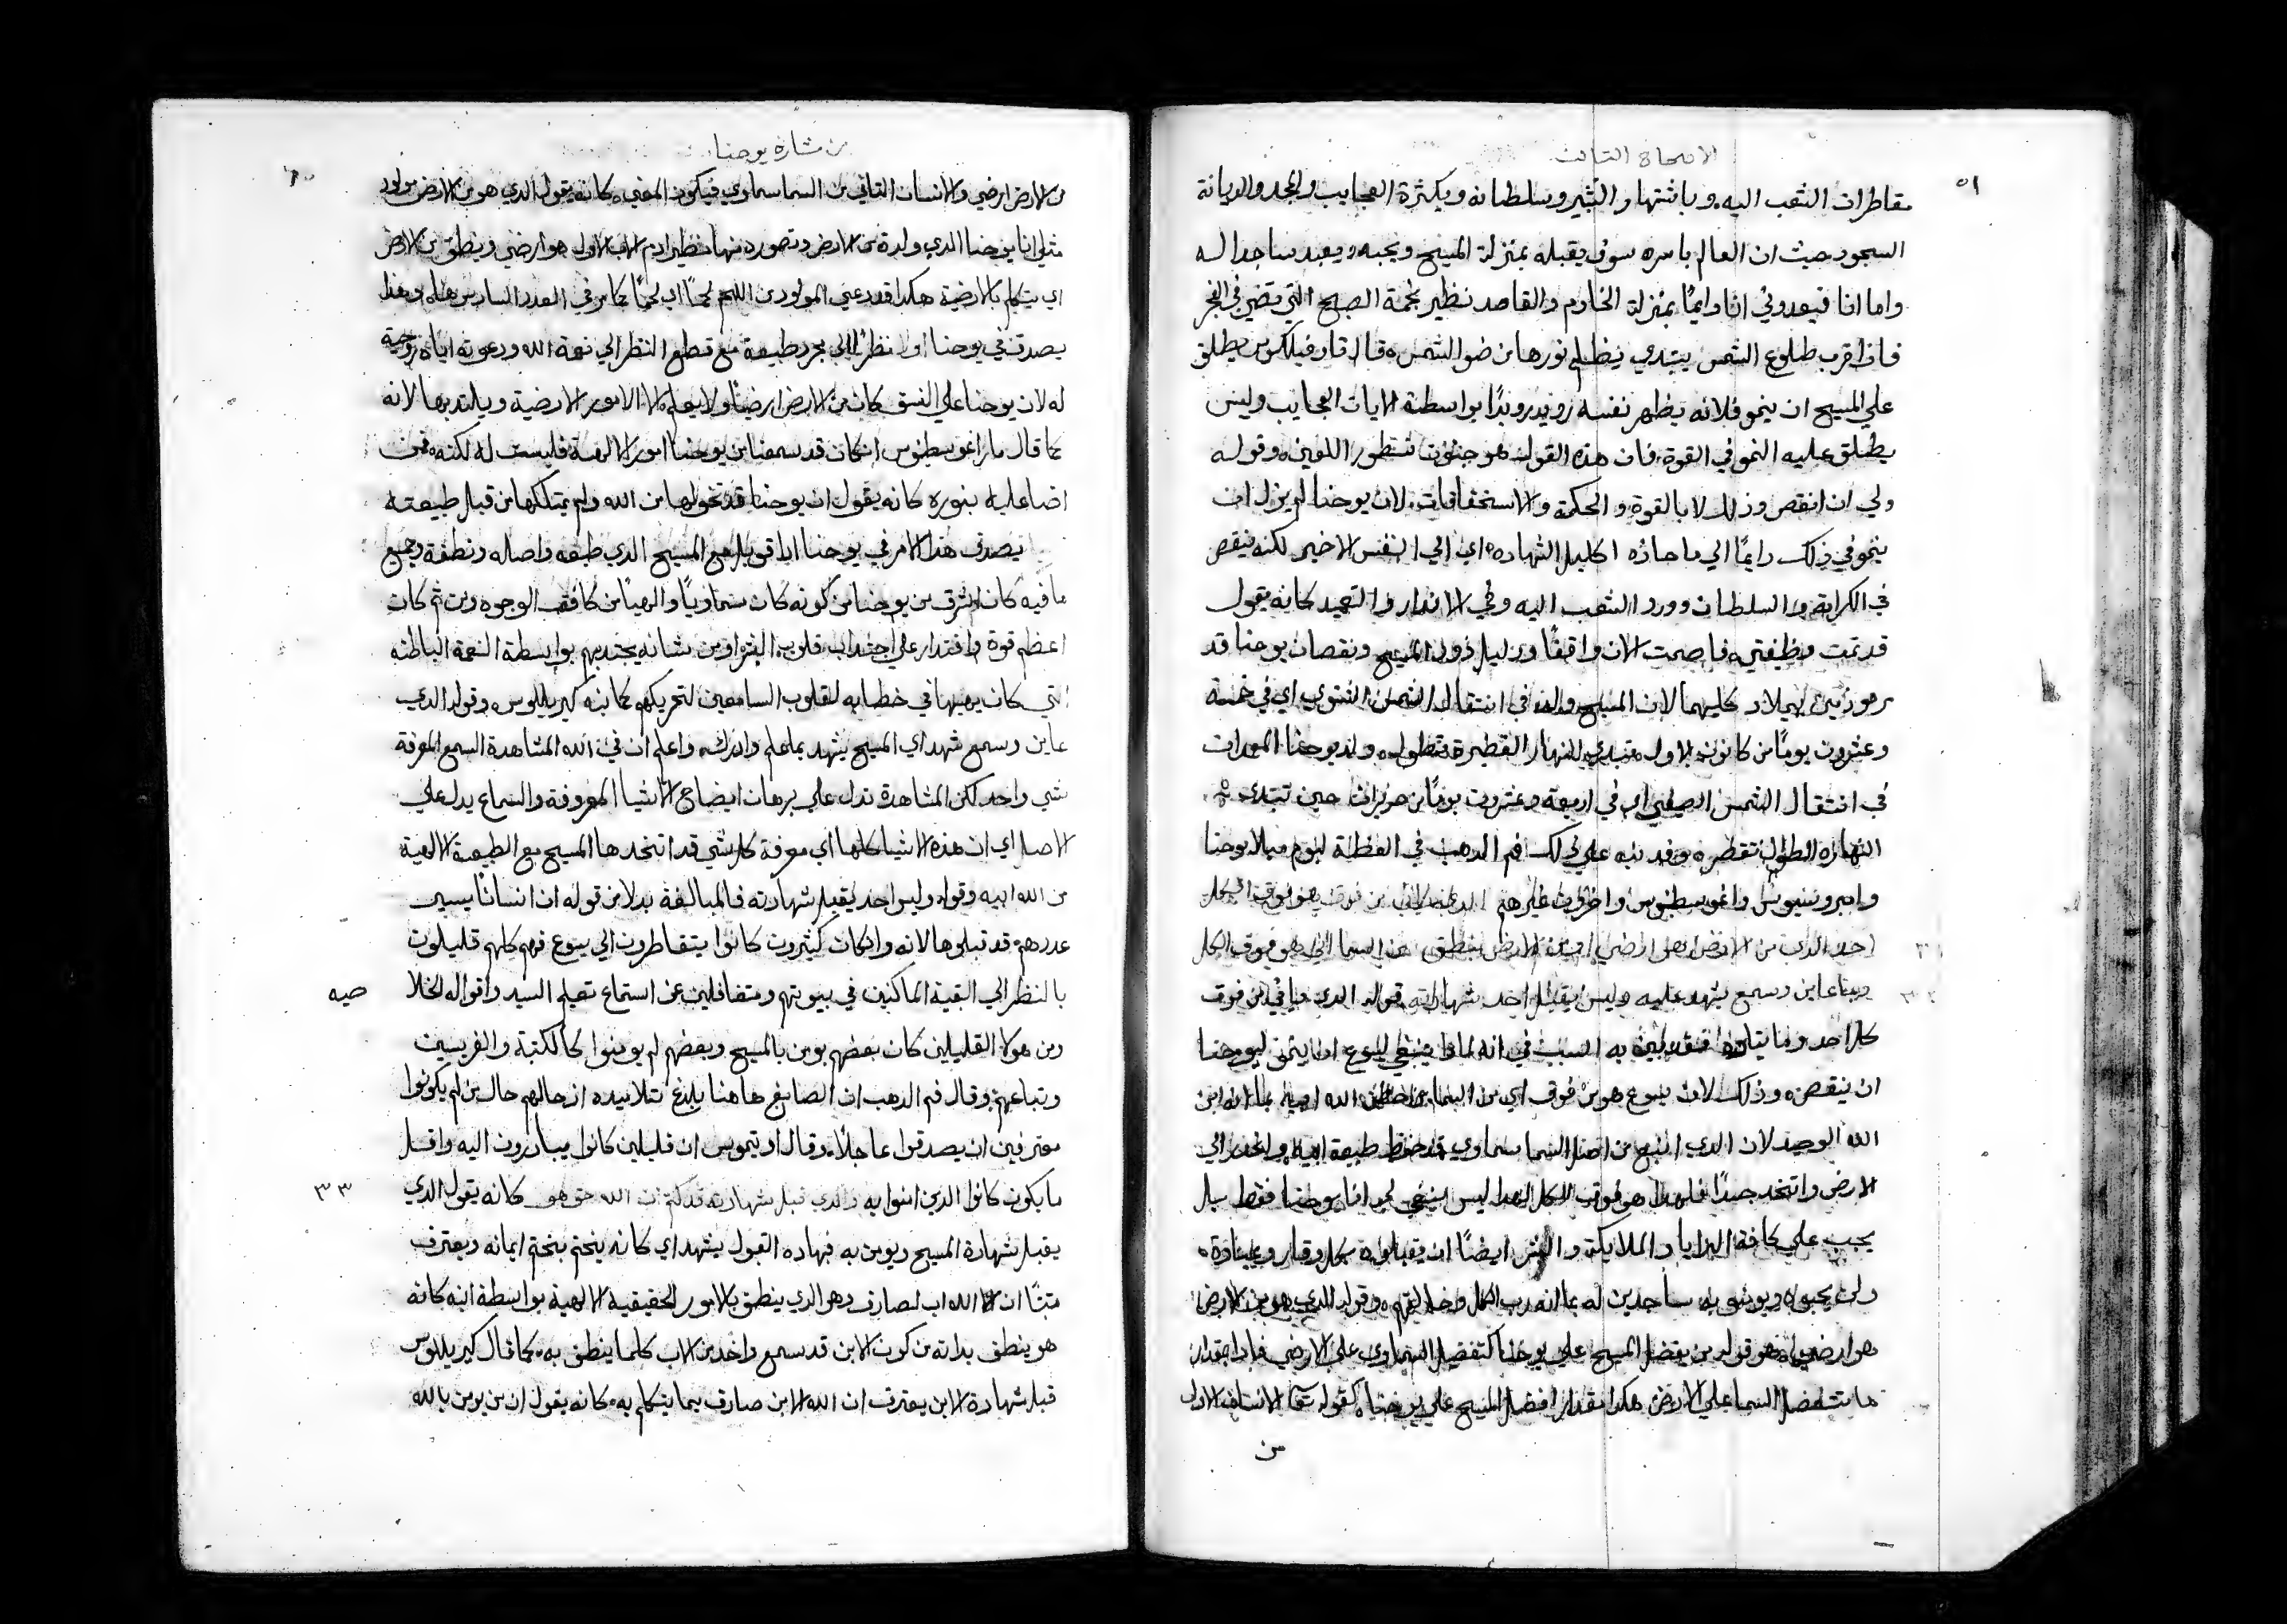 الاصحاح التالت
٥١
مقاطرات الشعب اليه. وباشتهار والتبشير وسلطانه وبكثرة العجايب والمجد والديانة
السجود حيث ان العالم باسره سوف يقبله بمنزلة المسيح ويحبه ويعبد ساجدا له
واما انا فيعدوني انا دايمًا بمنزلة الخادم والقاصد نظير نجمة الصبح التي تضي في الفجر
فاذا قرب طلوع الشمس يبتدي يظلم نورها من ضو الشمس. قال قار فيلكوس يطلق
علي المسيح ان ينمو فلانه يظهر نفسه رويدرويدًا بواسطة الايات العجايب وليس
يطلق عليه النمو في القوة. فان هذه القول هو جنون نسطور اللعين. وقوله
ولي ان انقص وذلك لا بالقوة والحكمة والاستحقاقات. لان يوحنا لم يزل ان
ينمو في ذلك دايمًا الي ما حازه اكليل الشهاده اي الي النفس الاخير لكنه نيقص
في الكرامة والسلطان وورود الشعب اليه وفي الانذار والتعميد كانه يقول
قد تمت وظيفتي. فاصمت الان واقفًا ودليل ذلك المسيح ونقصان يوحنا قد
رموز من ميلاد كليهما لان المسيح ولد في انتقال الشمس الشتوي اي في خمسة
وعشرون يومًا من كانون الاول. فتبتدي النهار القصيرة فتطول. ولد يوحنا المعمدان
في انتقال الشمس الصيفي اي في اربعة وعشرون يومًا من حزيران حين تبتدي
النهاره الطوال تقصر. وقد نبه علي ذلك فم الدهب في العظة ليوم ميلاد يوحنا
وامبروسيوس واغوسطينوس واخرون غيرهم الذي كان من فوق هو فوق الكل
٣١ احد الذي من الارض هو ارضي ومن الارض ينطق من السما اتي هو فوق الكل
٣٢ وبما عاين وسمع يشهد عليه وليس يقبل احد شهادته قوله الذي ياتي من فوق
كل احد وما يتلوه فقد بين به السبب في انه لماذا ينبغي ليسوع ان ينمو ليوحنا
ان ينقص. وذلك لان يسوع هو من فوق اي من السما من حضن الله ابيه بما انه ابن
الله الوحيد لان الذي انبع من اصل السما سماوي قد حفظ طبيعة ابيه وانحدر الي
الارض واتخد جسدًا فلهذا هو فوق الكل لهذا ليس ينبغي لي انا يوحنا فقط بل
يجب علي كافة البرايا والملايكة والبشر ايضًا ان يقبلوه بكل وقار وعبادة.
ولن يحبوه ويومنو به ساجدين له بما انه رب الكل وخالقهم. وقوله الذي هو من الارض
هو ارضي. هو قوله من يفضل المسيح علي يوحنا كتفضيل السماوي علي الارضي فاذا بمقدار
ما تتفضل السما علي الارض هكدا بمقدار افضل المسيح علي يوحنا. كقوله تعا الانسان الاول
من
من بشارة يوحنا
من الارض ارضي والانسان التاني من السما سماوي فيكون المعني. كانه يقول الذي هو من الارض مولود
مثلي انا يوحنا الذي ولدة من الارض وتصوره منها نظير ادم الاب الاول هو ارضي وينطق من الارض
اي يتكلم بالارضية هكدا قد دعي المولود من اللحم لحمًا اي لحمًا كما مر في العدد السادس هذا. وهذا
يصدق في يوحنا اولا نظرًا الي مجرد طبيعة مع قطع النظر الي نعمة الله ودعوته اياه روحية
له لان يوحنا علي النسق كان من الارض ارضيًا ولا يعلم الا الامور الارضية ويلتد بها لانه
كما قال مار اغوسطينوس ان كان قد سمعنا من يوحنا امور الالهية فليست له لكنه ممن
اضا عليه بنوره كانه يقول ان يوحنا قد نخولها من الله ولم يمتلكها من قبل طبيعته
يصدق هذا الامر في يوحنا اذا قوبل مع المسيح الذي طبعه واصله ونطقه وجميع
ما فيه كان اشرف من يوحنا من كونه كان سماويًا والهيًا من كافة الوجوه ومن ثم كان
اعظم قوة واقتدار علي اجتداب قلوب البشر ومن شانه يجتذبهم بواسطة النعمة الباطنه
التي كان يهبها في خطابه لقلوب السامعين لتحريكهم كما بنه كيريللوس. وقوله الذي
عاين وسمع شهد اي المسيح يشهد بما علم وادرك. واعلم ان في الله المشاهدة السمع المعرفة
شي واحد لكن المشاهدة تدل علي برهان ايضاح الاشيا المعروفة والسماع يدل علي
الاصل اي ان هذه الاشيا كلها اي معرفة كل شي قد اتخدها المسيح مع الطبيعة الالهية
من الله ابيه وقوله وليس احد يقبل شهادته فالمبالغة بدلا من قوله ان اناسًا يسير
عددهم قد قبلوها لانه وان كان كثيرون كانوا يتقاطرون الي يسوع فهم كلهم قليلون
بالنظر الي البقية الماكثين في بيوتهم ومتغافلين عن استماع تعليم السيد واقواله الخلا صيه
ومن هولا القليلين كان بعضهم يومن بالمسيح وبعضهم لم يومنوا كالكتبة والفريسين
وتباعهم. وقال فم الدهب ان الصايغ هاهنا بلدغ تلاميده اذ حالهم حال من لم يكونوا
معترفين ان يصدقوا عاجلًا. وقال اوتيموس ان قليلين كانوا يبادرون اليه واقل
٣٣ ما يكون كانوا الذين امنوا به والذي قبل شهادته قد ختم ان الله حق هو كانه يقول الذي
يقبل شهادة المسيح ويومن به فبهاده القبول يشهد اي كانه يختم بختم ايمانه ويعترف
مثبتًا ان الله اب لصادق وهو الذي ينطق بالامور الحقيقية الالهية بواسطة ابنه كانه
هو ينطق بداته من كون الابن قد سمع واخد من الاب كلما ينطق به. كما قال كيريللوس
قبل شهادة الابن يعترف ان الله الابن صادق بما يتكلم به. كانه يقول ان من يومن بالله